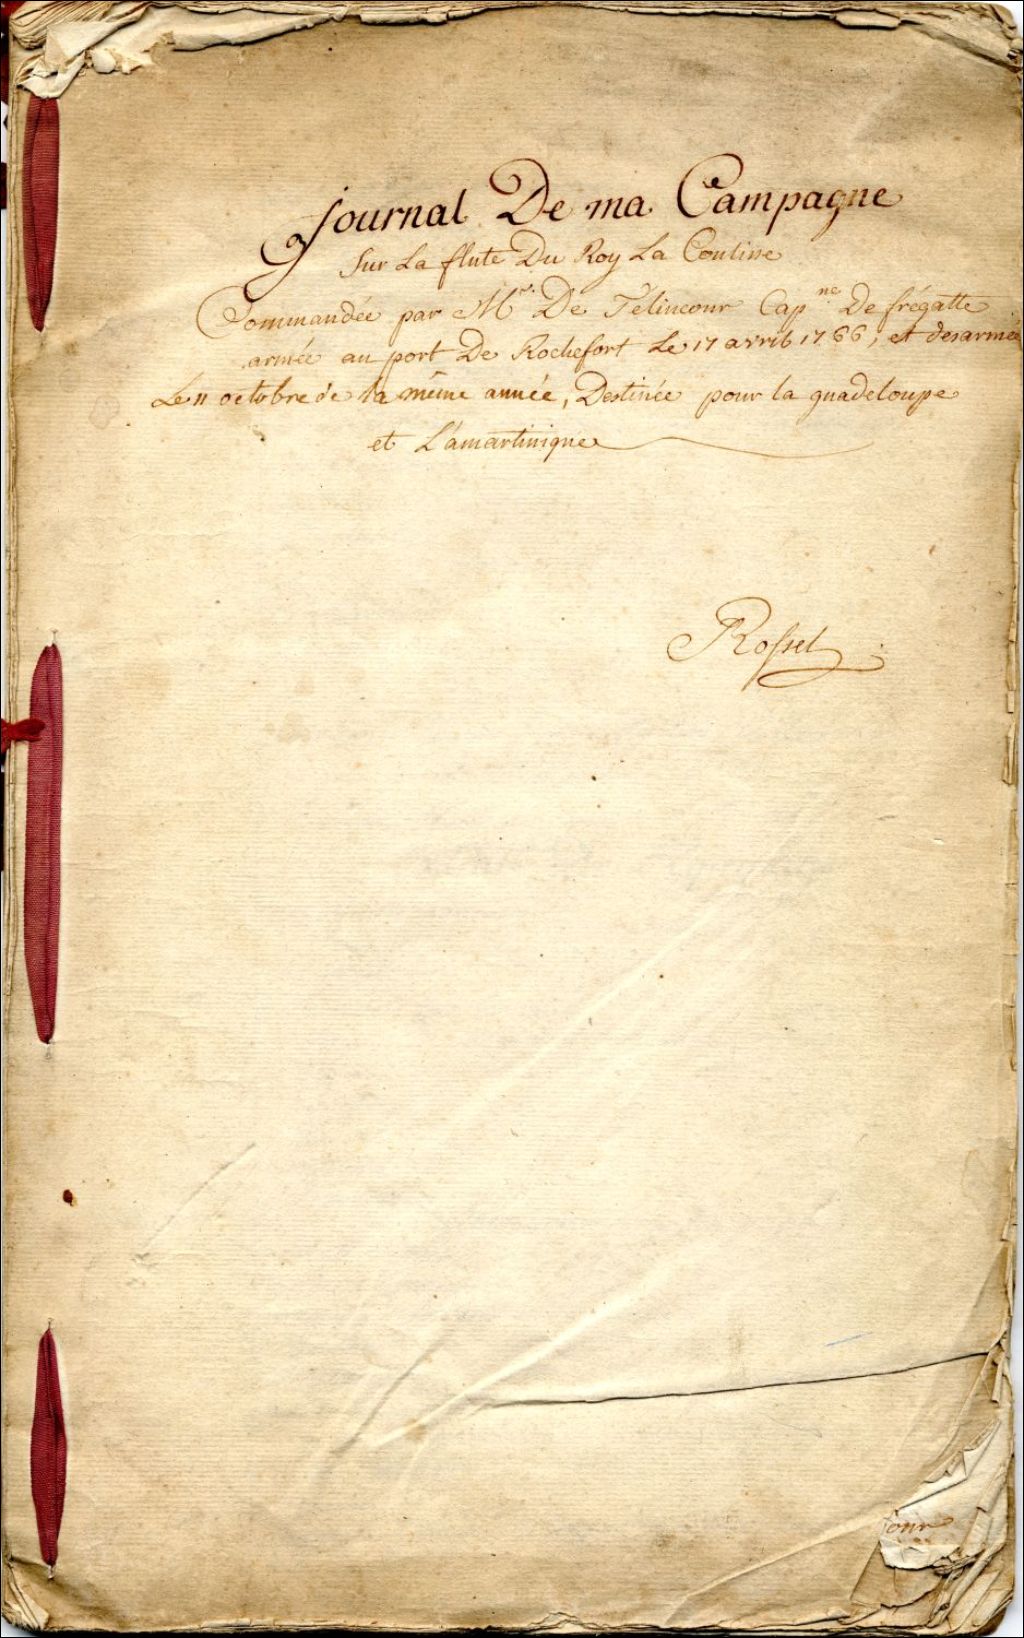 Journal De ma Campagne
Sur La flute Du Roy La Coulisse
Commandée par Mr. De Télincour Cap.ne De frégatte
armée au port De Rochefort Le 17 avril 1766, et desarmée
Le 11 octobre de la même année, Destinée pour la guadeloupe
et L'amartinique
Rossel
our